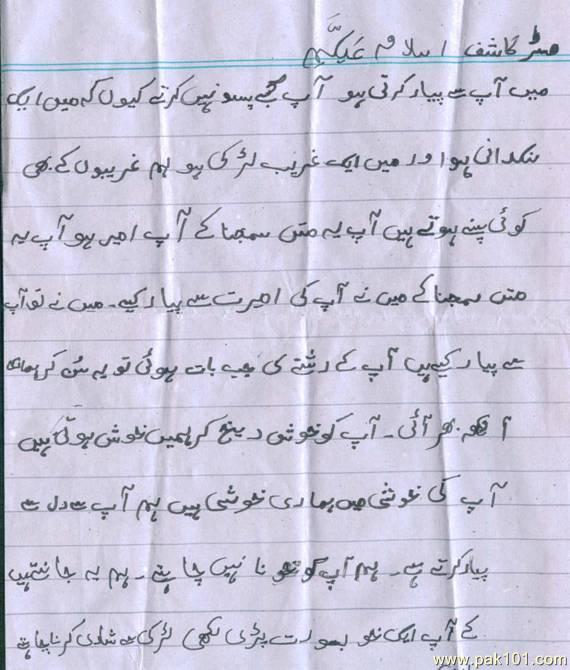 مسٹر کاشف اسلام عَلیکُم
میں آپ سے پیار کرتی ہو آپ مجھے پسند نہیں کرتے کیوں کہ میں ایک
نوکرانی ہوا ور میں ایک غریب لڑکی ہو ہم غریبوں کے بھی
کوئی سپنے ہوتے ہیں آپ یہ متں سمجنا کے آپ امیر ہو آپ یہ
متں سمجنا کے میں نے آپ کی امیرت سے پیار کیے۔ میں نے تو آپ
سے پیار کیے ہیں آپ کے رشتے کی جب بات ہوئی تو یہ سُن کر ہماری
آنکھ بھر آئی۔ آپ کو خوش دیکھ کر ہمیں خوش ہوتی ہیں
آپ کی خوشی میں ہماری خوشی ہیں ہم آپ سے دل سے
پیار کرتے ہے۔ ہم آپ کو کھونا نہیں چاہتے۔ ہم یہ جانتے ہیں
کے آپ ایک خوبصورت پڑی لکھی لڑکی سے شادی کرنا چاہتے
www.pak101.com